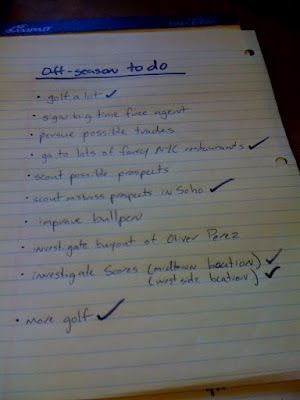 Off-season to do
• golf a lot ✓
• sign big time free agent
• pursue possible trades
• go to lots of fancy NYC restaurants ✓
• scout possible prospects
• scout prospects in Soho ✓
• improve bullpen
• investigate buyout of Oliver Perez
• investigate Scores (midtown location) ✓
(westside location) ✓
• more golf ✓